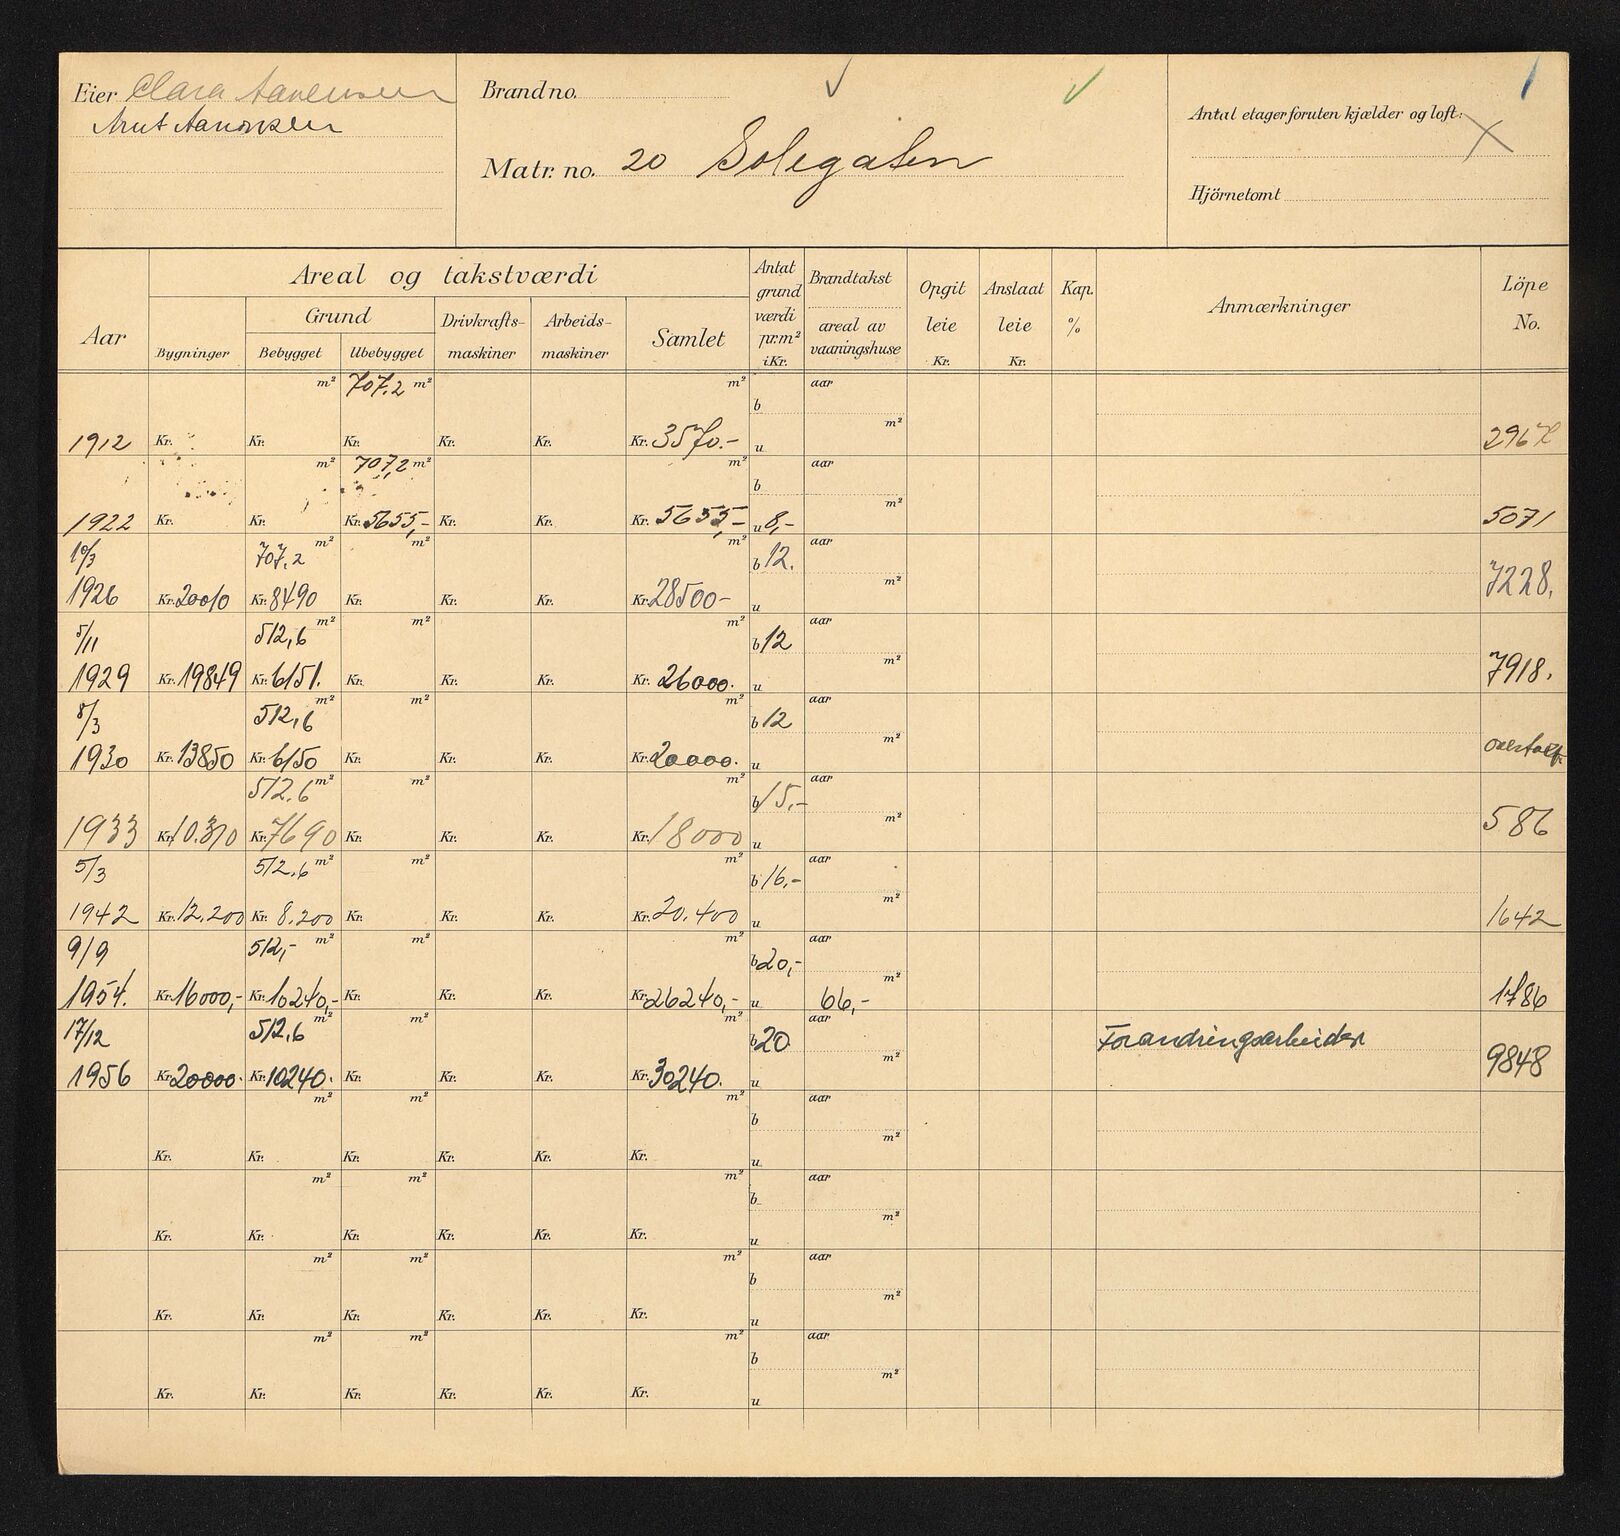 Eier Clara Aanensen
Knut Aanonsen
Brand no.
Matr. no. 20 Solegaten
Antal etager foruten kjælder og loft: X
Hjörnetomt
Aar
Areal og takstværdi
Bygninger
Grund
Bebygget Ubebygget
Drivkrafts-
maskiner
Arbeids-
maskiner
Samlet
Antat
grund
værdi
pr.m²
i Kr.
Brandtakst
areal av
vaaningshuse
Opgit
leie
Kr.
Anslaat
leie
Kr.
Kap.
%
Anmærkninger
Löpe
No.
m² 707.2 m² m² b aar m²
1912 Kr. Kr. Kr. Kr. Kr. Kr. 3570.- u
m² 707,2 m² m² b aar m²
1922 Kr. Kr. Kr. 5655,- Kr. Kr. Kr. 5655,- u 8,- 5071
10/3 707.2 m² m² m² b 12. aar m²
1926 Kr. 20010 Kr. 8490 Kr. Kr. Kr. Kr. 28500- u 7228.
5/11 512,6 m² m² m² b 12 aar m²
1929 Kr. 19849 Kr. 6151. Kr. Kr. Kr. Kr. 26000. u 7918.
8/3 512,6 m² m² m² b 12 aar m²
1930 Kr. 13850 Kr. 6150 Kr. Kr. Kr. Kr. 20000. u
512.6 m² m² m² b 15,- aar m²
1933 Kr. 10.310 Kr. 7690 Kr. Kr. Kr. Kr. 18000 u 586
5/3 512.6 m² m² m² b 16,- aar m²
1942 Kr. 12.200 Kr. 8.200 Kr. Kr. Kr. Kr. 20.400 u 1642
9/9 512,- m² m² m² b 20,- aar m²
1954. Kr. 16000,- Kr. 10240,- Kr. Kr. Kr. Kr. 26240,- u 66,- 1786
17/12 512.6 m² m² m² b 20 aar m² Forandringsarbeider
1956 Kr. 20000. Kr. 10240. Kr. Kr. Kr. Kr. 30240. u 9848
m² m² m² b aar m²
Kr. Kr. Kr. Kr. Kr. Kr. u
m² m² m² b aar m²
Kr. Kr. Kr. Kr. Kr. Kr. u
m² m² m² b aar m²
Kr. Kr. Kr. Kr. Kr. Kr. u
m² m² m² b aar m²
Kr. Kr. Kr. Kr. Kr. Kr. u